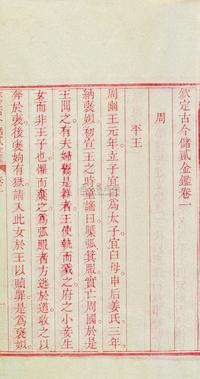 欽定古今儲貳金鑑卷一
周
平王
周幽王元年立子宜臼為太子宜臼母申后姜氏三年
納褒姒初宣王之時童謠曰檿弧箕服實亡周國於是
王聞之有夫婦鬻是器者王使執而戮之府之小妾生
女而非王子也懼而棄之為弧服者方逃於道收之以
奔於褒後褒姁有獄請入此女於王以贖罪是為褒姒